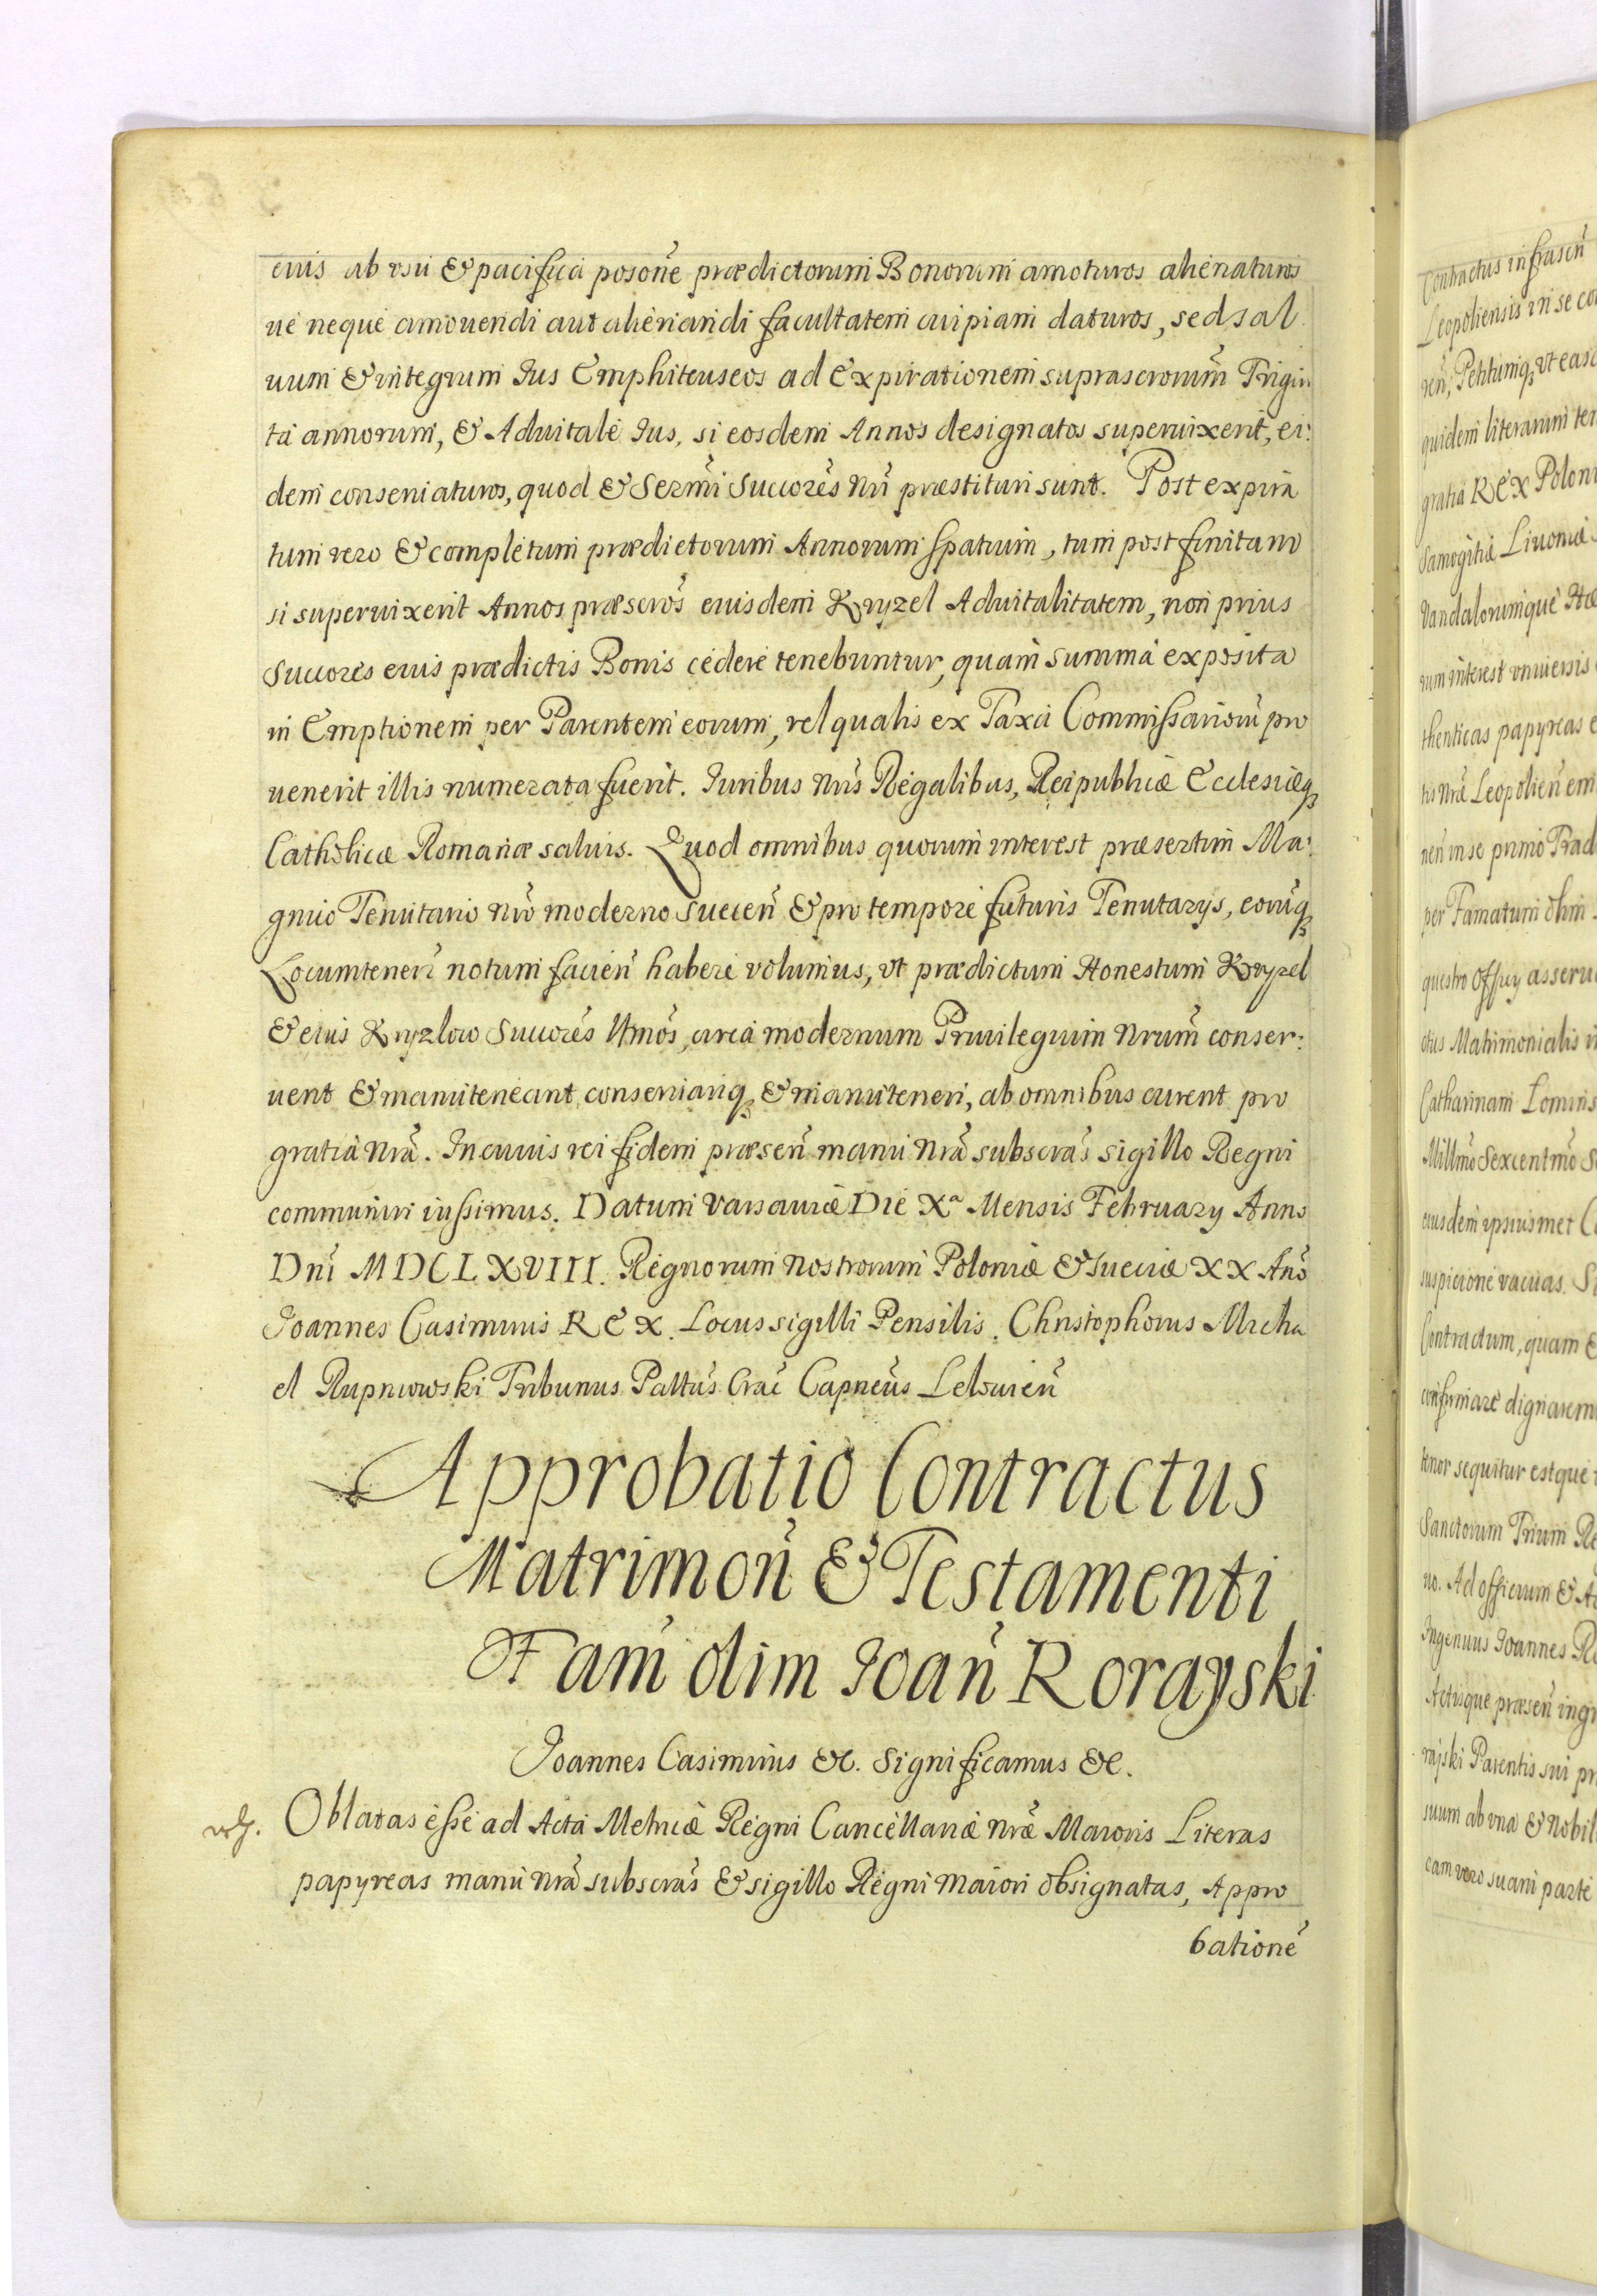 eius ab usu & pacifica posone prædictorum Bonorum amoturos alienaturos
ue neque amouendi aut alienandi facultatem cuipiam daturos, sed sal
uum & integrum Ius Emphiteuseos ad Expirationem suprascrorum Trigin
ta annorum, & Aduitale Ius, si eosdem Annos designatos superuixerit, ei:
dem conseruaturos, quod & Sermi Succores Nri præstituri sunt. Post expira
tum vero & completum prædictorum Annorum spatium, tum post finitam
si superuixerit Annos præscros eiusdem Kryzel Aduitalitatem, non prius
Succores eius prædictis Bonis cedere tenebuntur, quam summa exposita
in Emptionem per Parentem eorum, vel qualis ex Taxa Commissariorum pro
uenerit illis numerata fuerit. Iuribus Nris Regalibus, Reipublicæ Ecclesiæq
Catholicæ Romanæ saluis. Quod omnibus quorum interest præsertim Ma:
gnifico Tenutario Nro moderno Suecen & pro tempore futuris Tenutarys, eorumq
Locumtenen notum facien habere volumus, vt prædictum Honestum Kryzel
& eius Kryzlow Succores Utmos, circa modernum Priuilegium Nrum conser:
uent & manuteneant conseruariq & manuteneri, ab omnibus curent pro
gratia Nra. In cuius rei fidem præsen manu Nra subscras sigillo Regni
communiri iussimus. Datum Varsauiæ Die Xa Mensis February Anno
Dni MDCLXVIII. Regnorum Nostrorum Poloniæ & Sueciæ XX Ano
Ioannes Casimirus REX. Locus sigilli Pensilis. Christophorus Micha
el Rupniowski Tribunus Pallus Crac Capneus Lelouien
Approbatio Contractus
Matrimon & Testamenti
Fam olim Ioan Rorayski
Ioannes Casimirus &c. Significamus &c.
Oblatas esse ad Acta Metricæ Regni Cancellariæ Nræ Maioris Literas
papyreas manu Nra subscras & sigillo Regni Maiori obsignatas, Appro
batione
Contractus infrascri
Leopoliensis in se co
ren, Petitumq vt easd
quidem literarum ten
gratia REX Poloni
Samogitiæ Liuoniæ
Vandalorumque Hæ
rum interest vniuersis
thenticas papyreas e
tis Nræ Leopolien em
nen in se primo Trad
per Famatum olim
questro Offcy asseru
ctus Matrimonialis i
Catharinam Lomins
Millmo Sexcentmo S
eiusdem ipsiusmet C
suspicione vacuas. S
Contractum, quam &
confirmare dignarem
tenor sequitur estque
Sanctorum Trium Re
no. Ad officium & Ac
Ingenuus Ioannes R
Actisque præsen ing
rajski Parentis sui p
suum ab vna & Nobil
eam vero suam parte